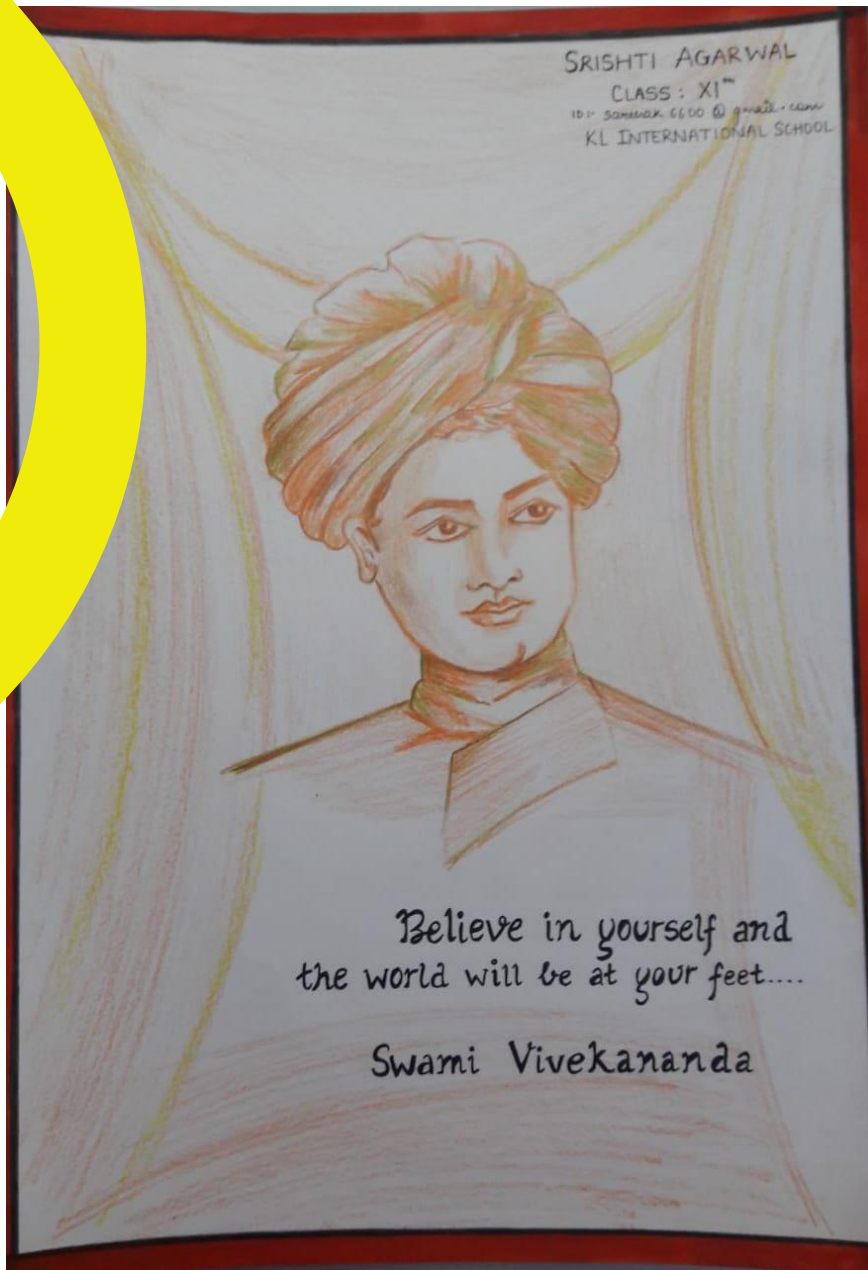 SRISHTI AGARWAL
CLASS : XIth
6600 @ gmail.com
KL INTERNATIONAL SCHOOL
Believe in yourself and
the world will be at your feet....
Swami Vivekananda